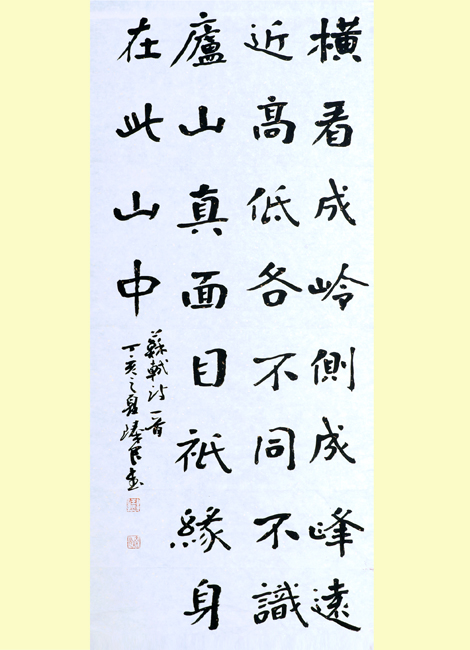 橫看成岭側成峰遠
近高低各不同不識
廬山真面目祇緣身
在此山中
蘇軾詩一首
丁亥之夏